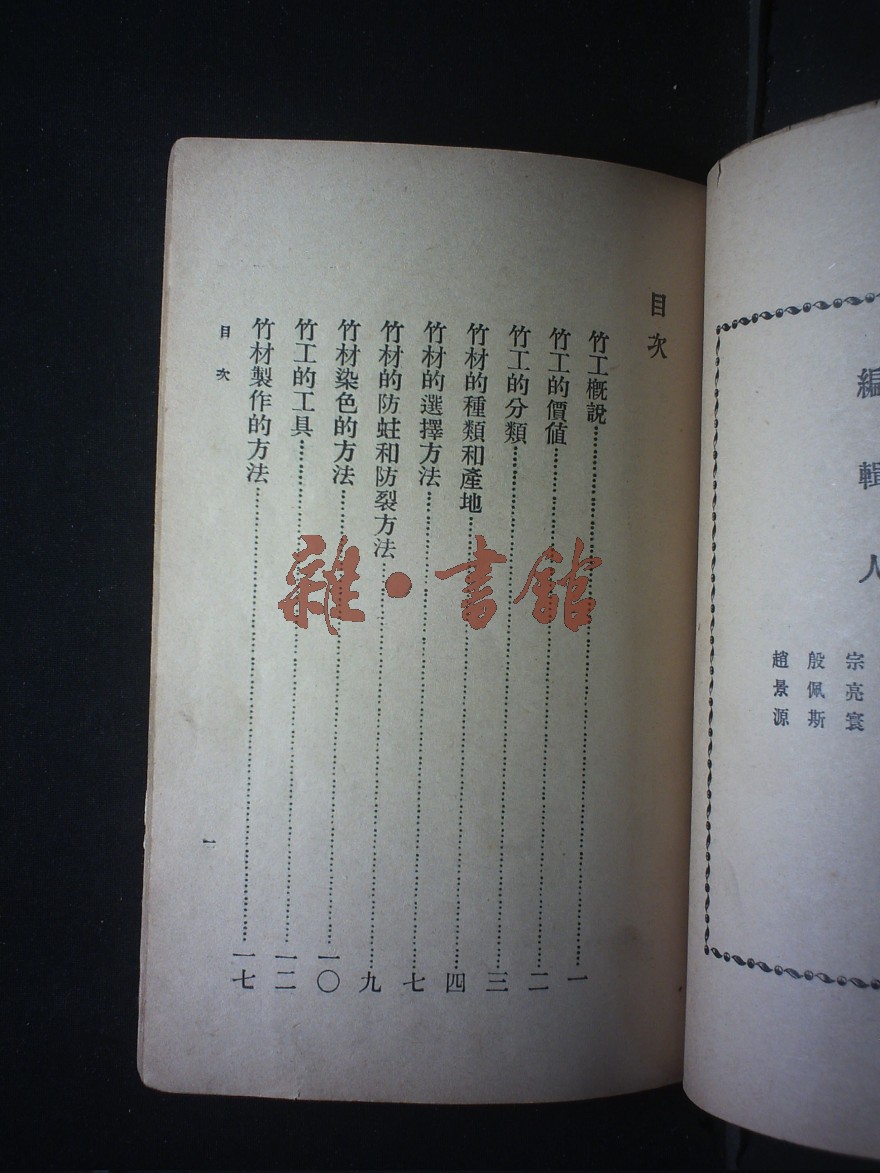 編輯人
宗亮寰
殷佩斯
趙景源
目次
竹工概說……一
竹工的價值……二
竹工的分類……三
竹材的種類和產地……四
竹材的選擇方法……七
竹材的防蛀和防裂方法……九
竹材染色的方法……一〇
竹工的工具……一二
竹材製作的方法……一七
目次
一
雜·書館